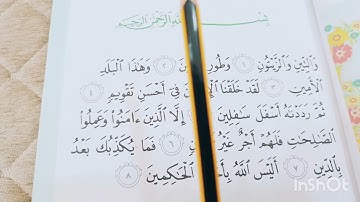 الرَّحْمَٰنِ الرَّحِيمِ
وَالتِّينِ وَالزَّيْتُونِ ١ وَطُورِ ٢ وَهَٰذَا الْبَلَدِ
الْأَمِينِ ٣ لَقَدْ خَلَقْنَا فِىٓ أَحْسَنِ تَقْوِيمٍ ٤
ثُمَّ رَدَدْنَٰهُ أَسْفَلَ سَٰفِلِينَ إِلَّا الَّذِينَ ءَامَنُوا وَعَمِلُوا
الصَّٰلِحَٰتِ فَلَهُمْ أَجْرٌ غَيْرُ ٦ فَمَا يُكَذِّبُكَ بَعْدُ
بِالدِّينِ ٧ أَلَيْسَ اللَّهُ الْحَٰكِمِينَ ٨
InShOt